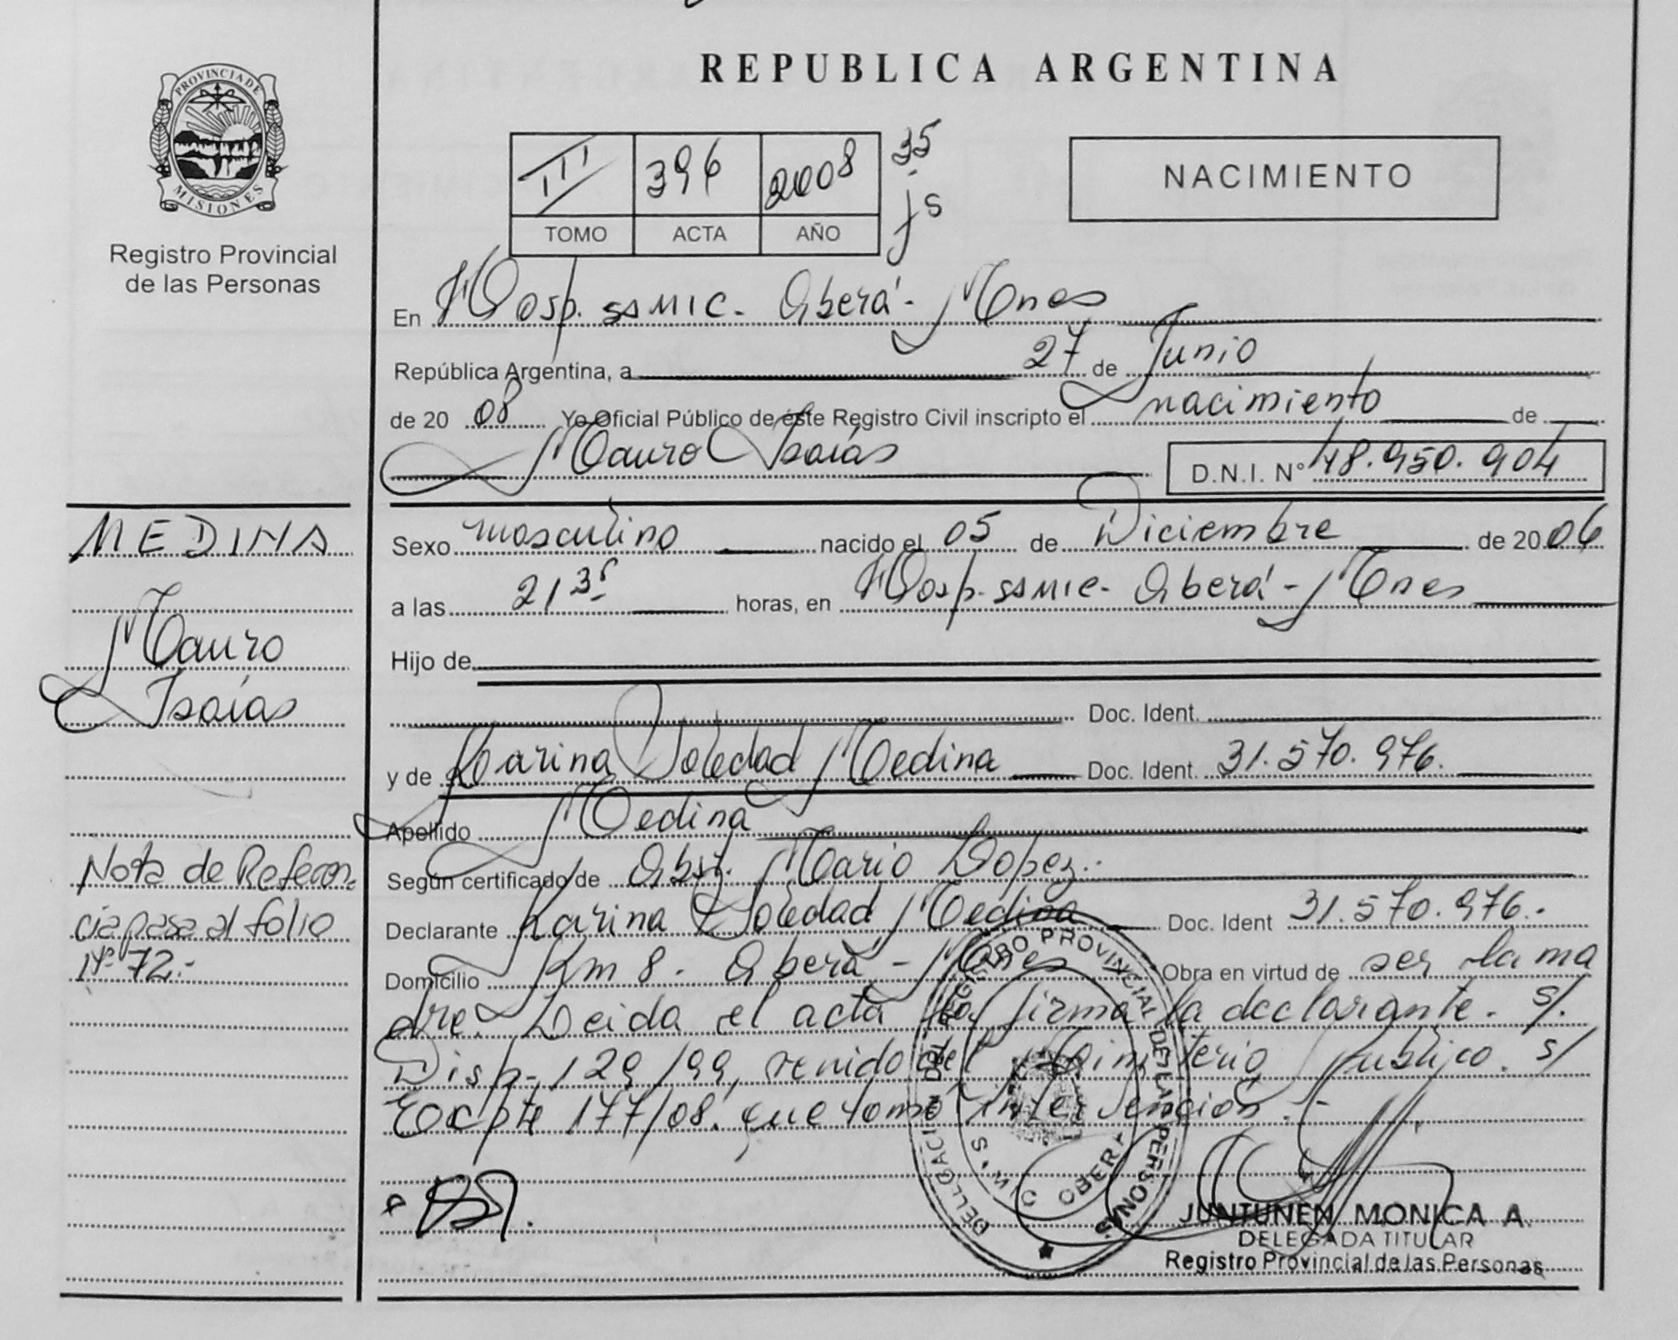 PROVINCIA DE
MISIONES
Registro Provincial
de las Personas
REPUBLICA ARGENTINA
III 396 2008 35
TOMO ACTA AÑO js
NACIMIENTO
En Hosp. SAMIC. Oberá - Mnes
República Argentina, a 27 de Junio
de 20 08 Yo Oficial Público de éste Registro Civil inscripto el nacimiento de
Mauro Isaías D.N.I. Nº 48.950.904
MEDINA
Mauro
Isaías
Nota de Referen
cia pasa al folio
Nº 72.-
Sexo masculino nacido el 05 de Diciembre de 20 06
a las 21 35 horas, en Hosp. SAMIC. Oberá - Mnes
Hijo de
Doc. Ident.
y de Karina Soledad Medina Doc. Ident. 31.570.976.
Apellido Medina
Según certificado de Obst. Mario Lopez.
Declarante Karina Soledad Medina Doc. Ident 31.570.976.-
Domicilio Km 8. Oberá - Mnes Obra en virtud de ser la ma
dre. Leida el acta la firma la declarante. s/.
Disp. 129/99, venido del Ministerio Publico. s/
Expte 177/08. que tomó intervención.-
DELEGACION DEL REGISTRO PROVINCIAL DE LAS PERSONAS
OBERA
JUNTUNEN MONICA A.
DELEGADA TITULAR
Registro Provincial de las Personas